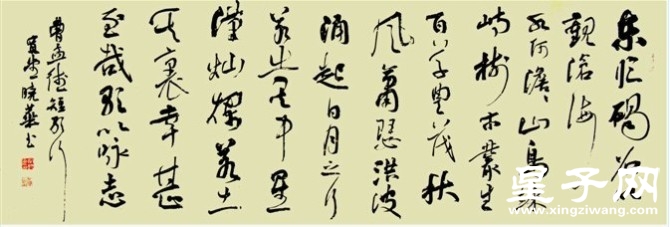 东临碣石以
观沧海
水何澹澹山岛竦
峙树木丛生
百草丰茂秋
风萧瑟洪波
涌起日月之行
若出其中星
漢灿烂若出
其裏幸甚
至哉歌以咏志
曹孟德短歌行
晓华书
星子网
www.xingziwang.com